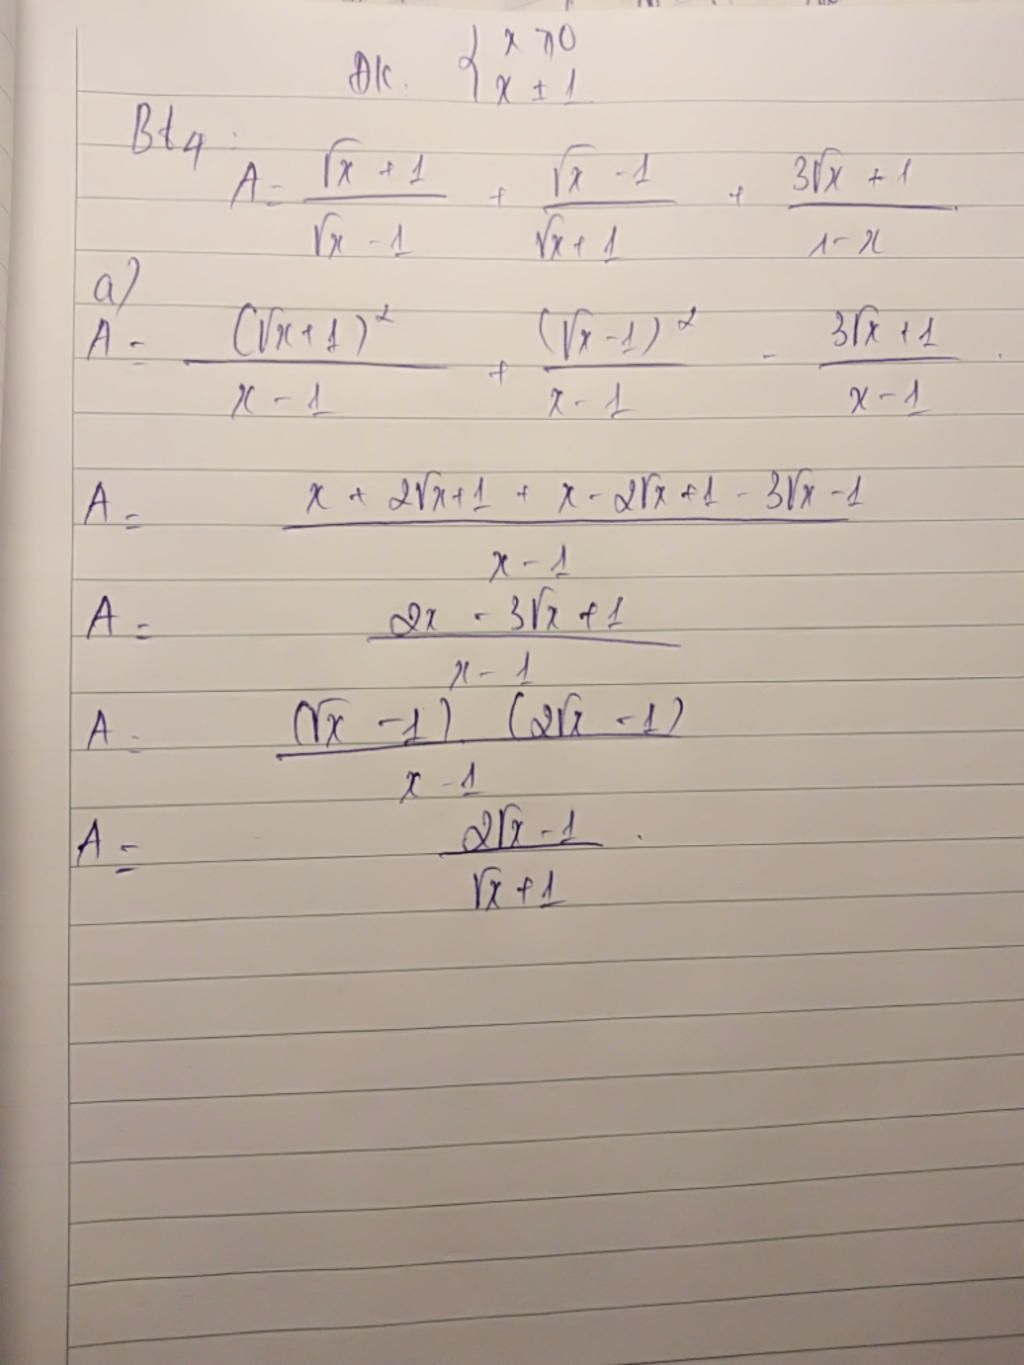 ĐK: { x ⩾ 0
x ± 1
Bt4:
A = (√x + 1)/(√x - 1) + (√x - 1)/(√x + 1) + (3√x + 1)/(1 - x)
a)
A = (√x + 1)²/(x - 1) + (√x - 1)²/(x - 1) - (3√x + 1)/(x - 1)
A = (x + 2√x + 1 + x - 2√x + 1 - 3√x - 1)/(x - 1)
A = (2x - 3√x + 1)/(x - 1)
A = (√x - 1) (2√x - 1)/(x - 1)
A = (2√x - 1)/(√x + 1).